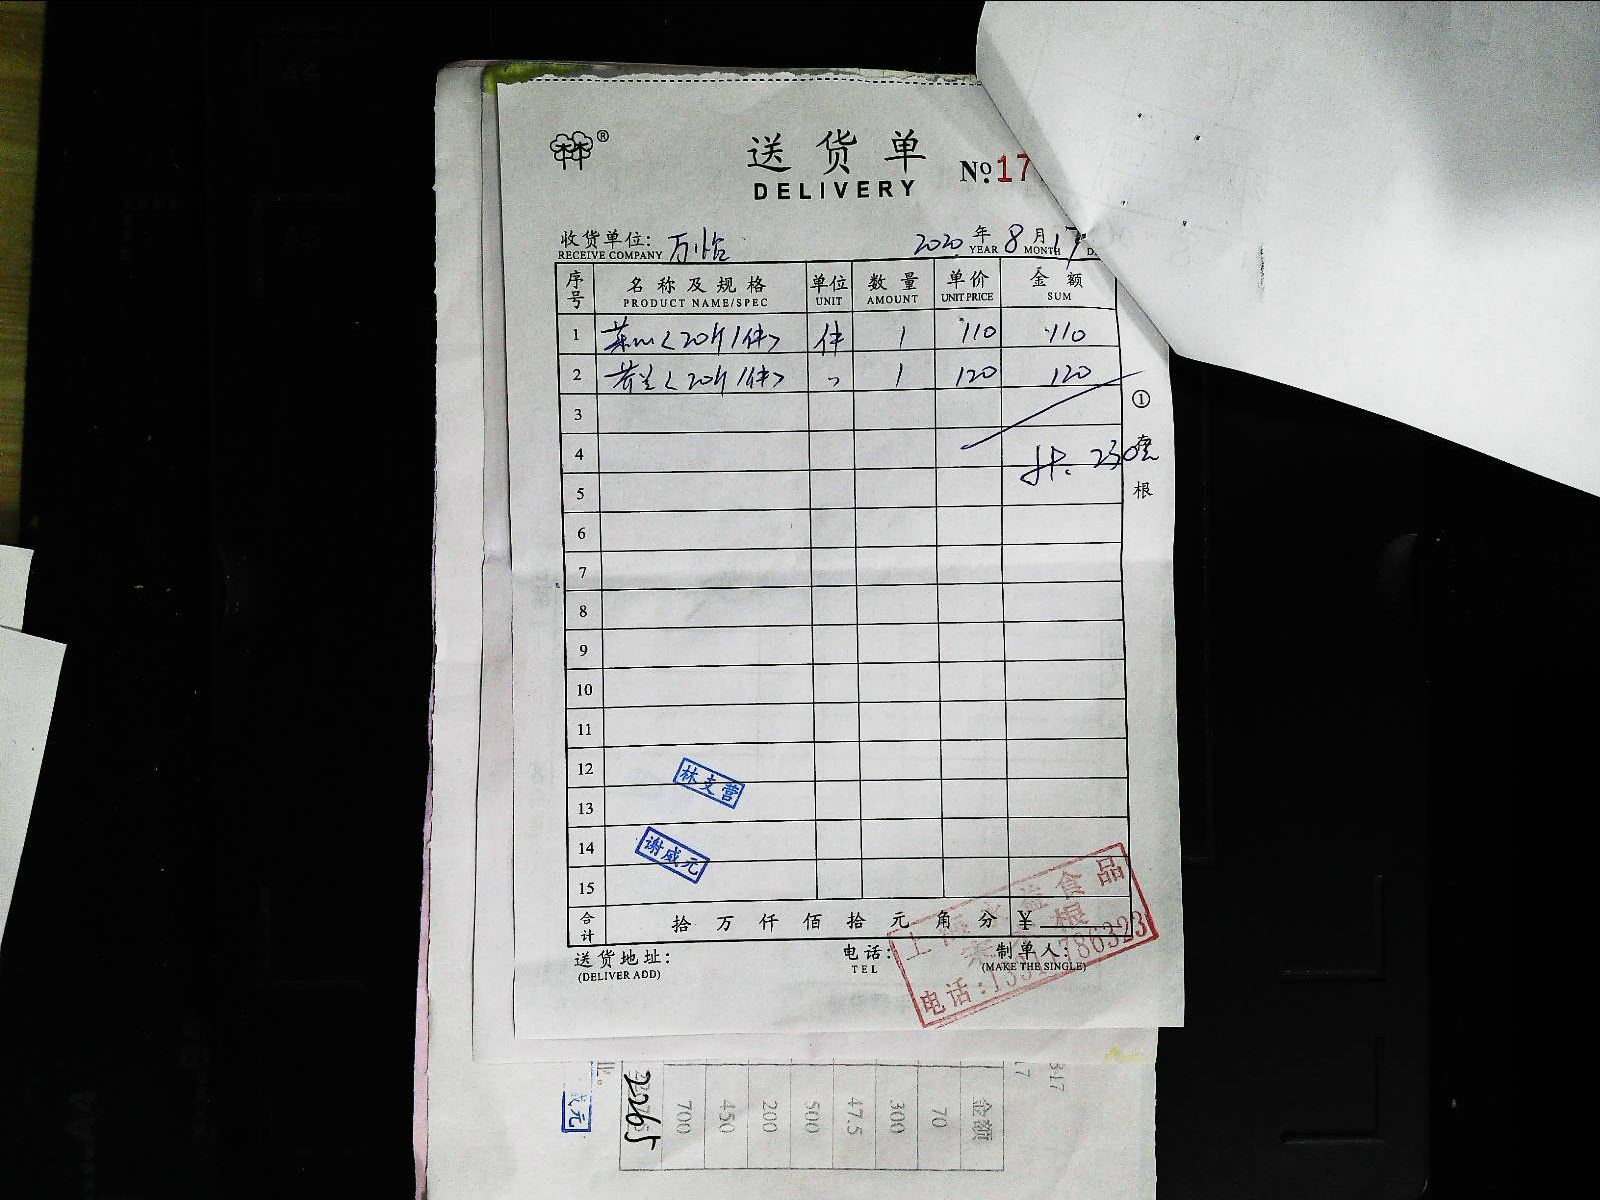 ®
送货单
DELIVERY
Nº 17
收货单位: 万怡
RECEIVE COMPANY
2020 年 8 月 17
YEAR MONTH
序号 名称及规格 单位 数量 单价 金额
PRODUCT NAME/SPEC UNIT AMOUNT UNIT PRICE SUM
1 (20斤/件) 件 1 110 110
2 (20斤/件) 〃 1 120 120
3
①
4
共: 230元
5
根
6
7
8
9
10
11
12
林支营
13
14
谢咸元
15
合计 拾万仟佰拾元角分 ¥
送货地址:
(DELIVER ADD)
电话:
TEL
制单人:
(MAKE THE SINGLE)
食品
电话:
786323
金额
70
300
47.5
500
200
450
700
2265
咸元